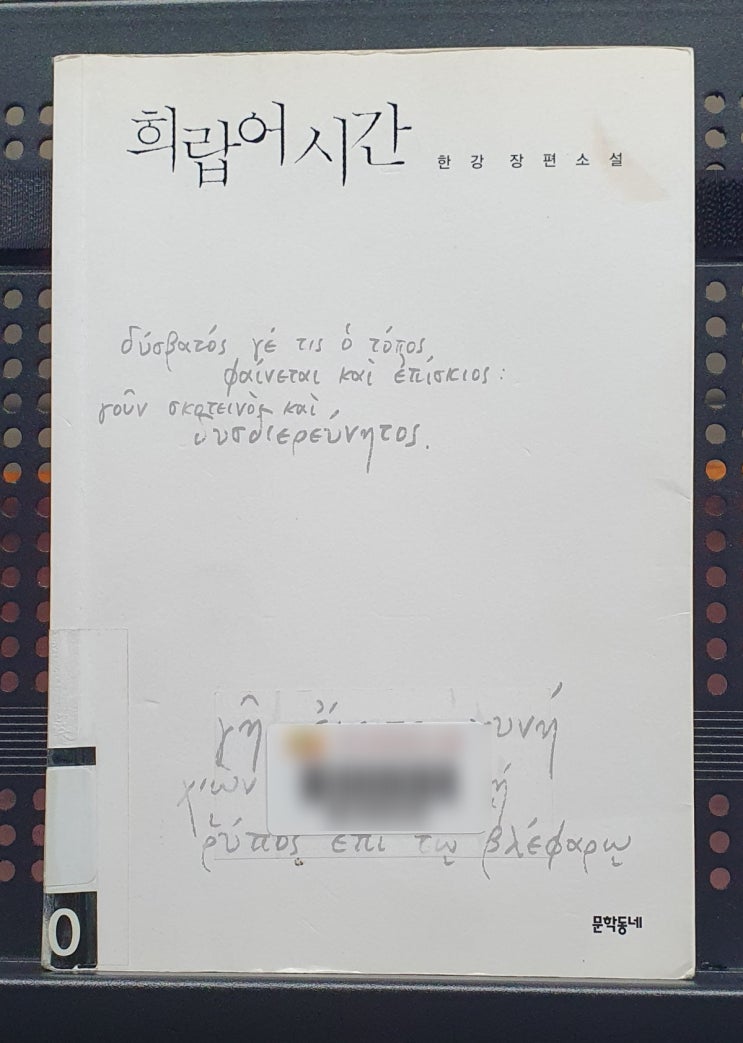 희랍어 시간
한강 장편소설
δύσβατός γέ τις ὁ τόπος
φαίνεται καὶ ἐπίσκιος:
γοῦν σκοτεινὸς καὶ
δυσδιερεύνητος.
γῆ γυνή
χιὼν
ῥύπος ἐπὶ τῳ βλέφαρῳ
0
문학동네